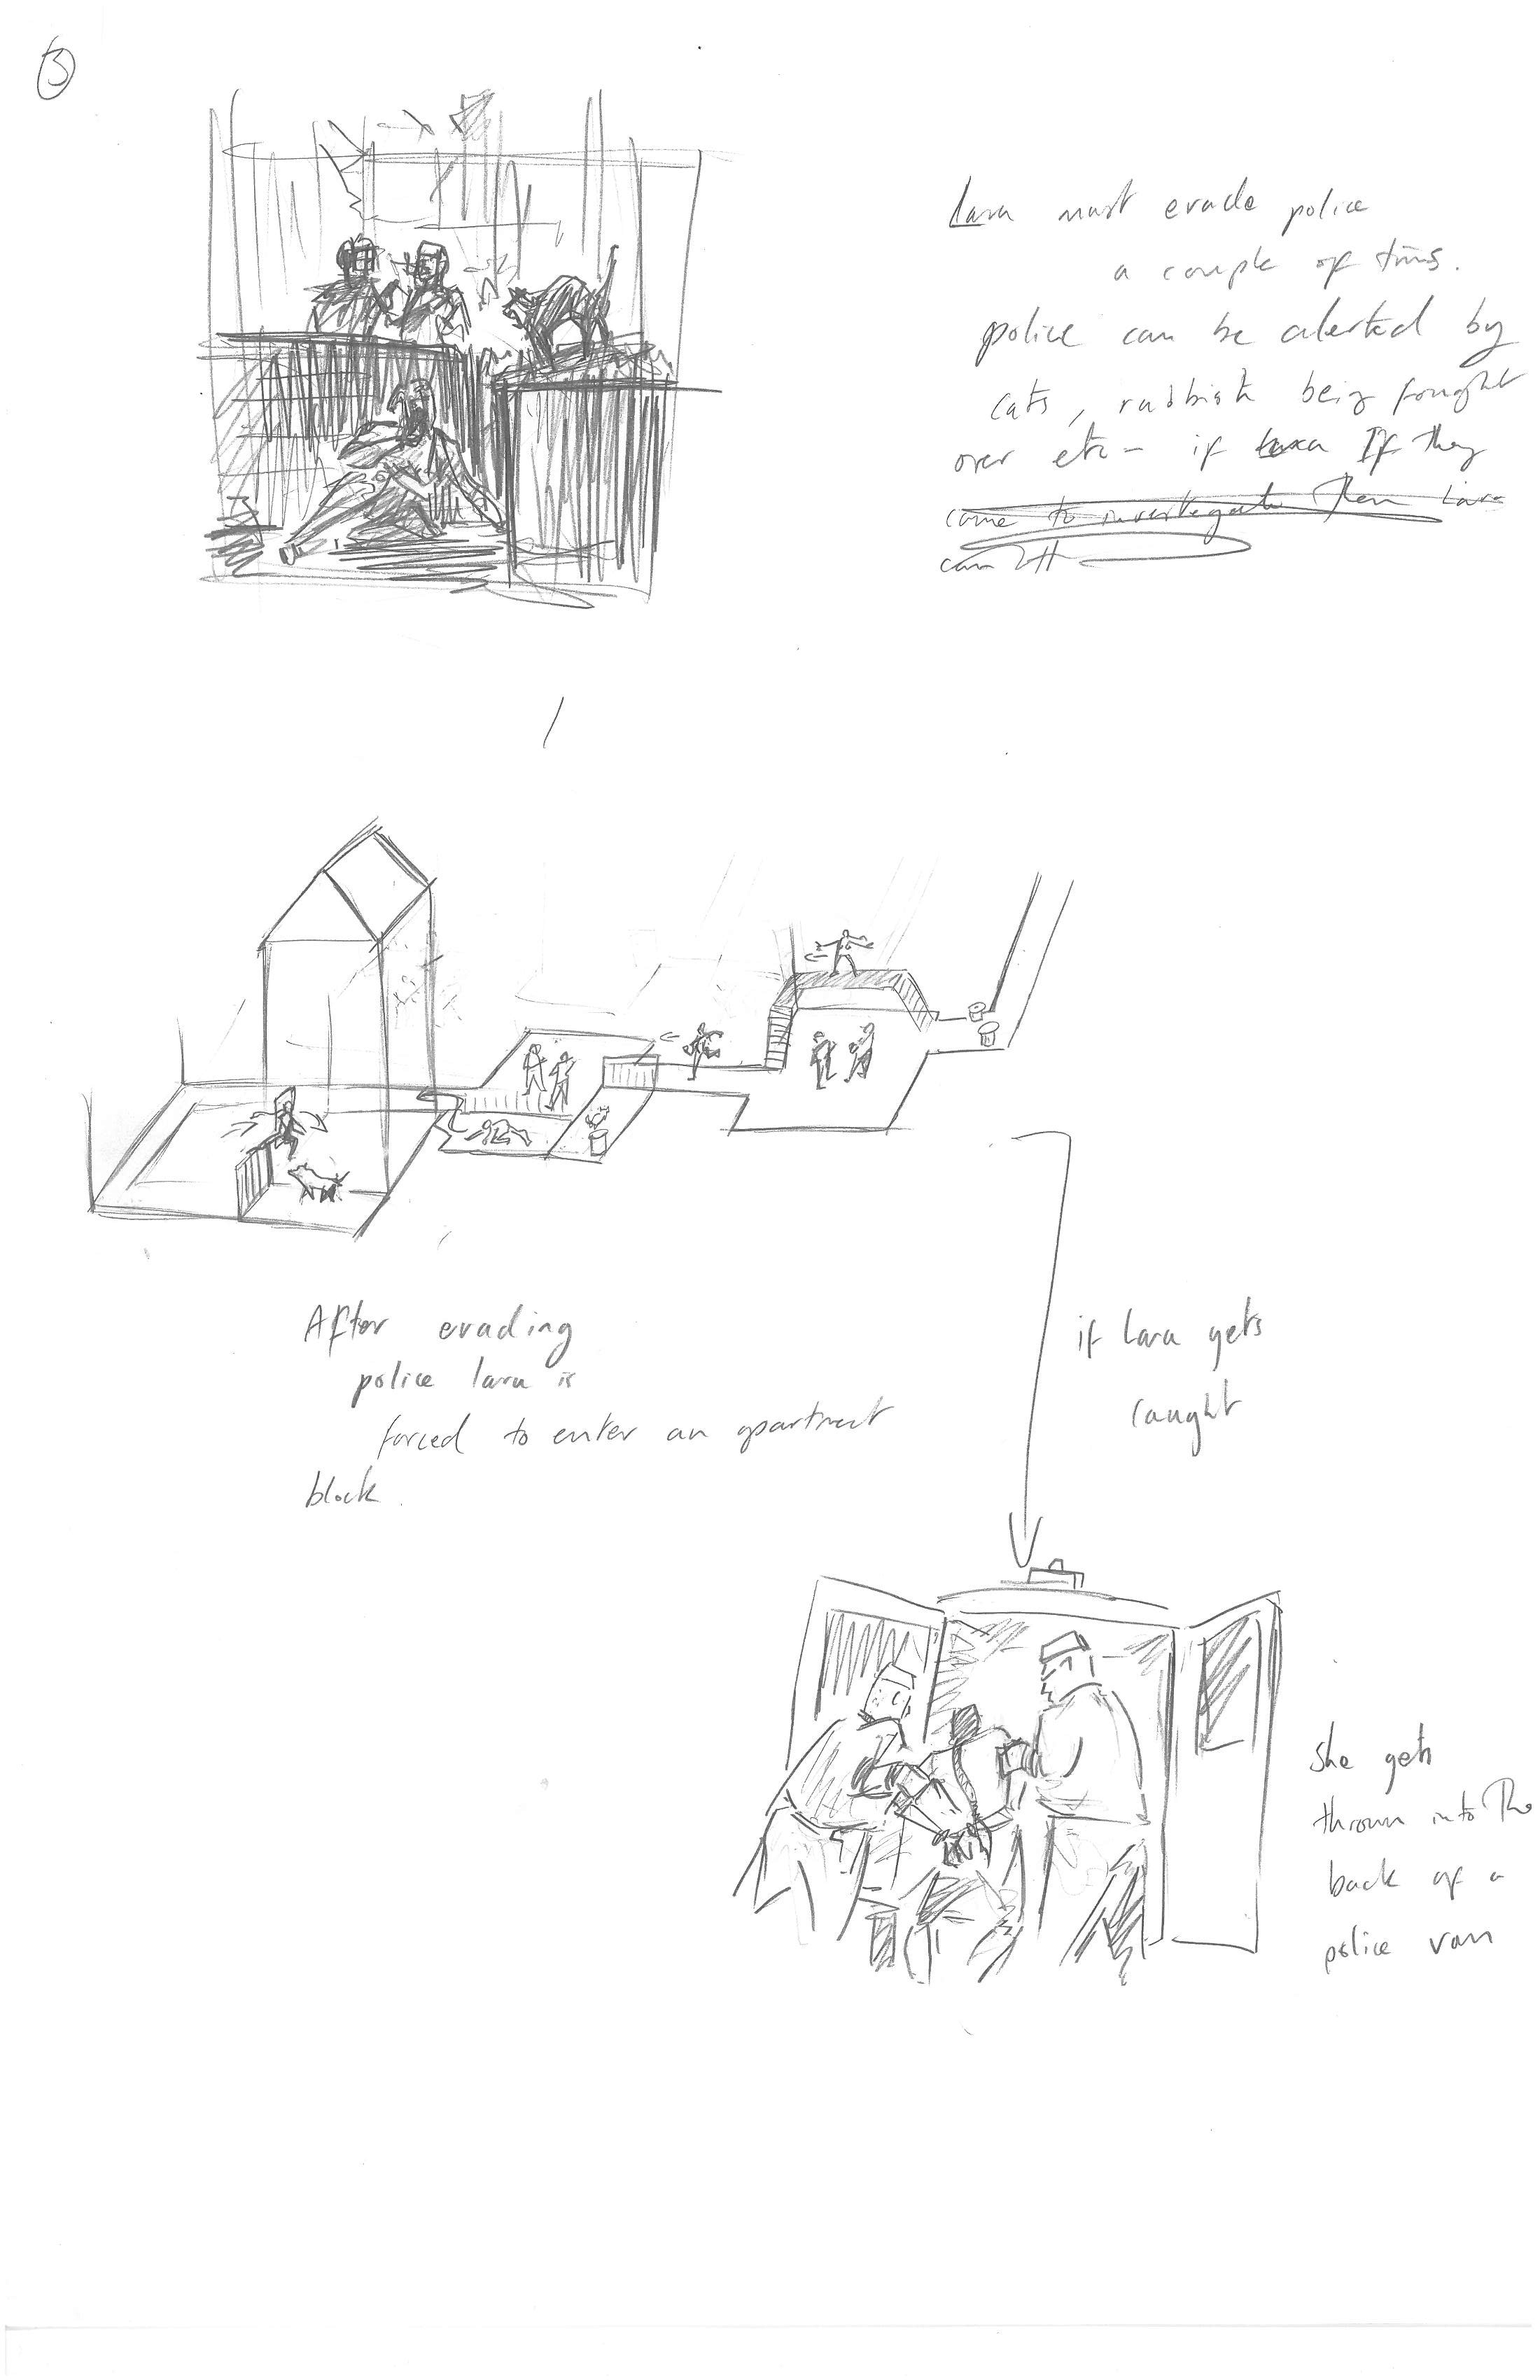 3
Lara must evade police
a couple of times.
police can be alerted by
cats, rubbish being fought
over etc - if Lara If they
come to investigate then Lara
can
After evading
police lara is
forced to enter an apartment
block.
if Lara gets
caught
She gets
thrown into The
back of a
police van